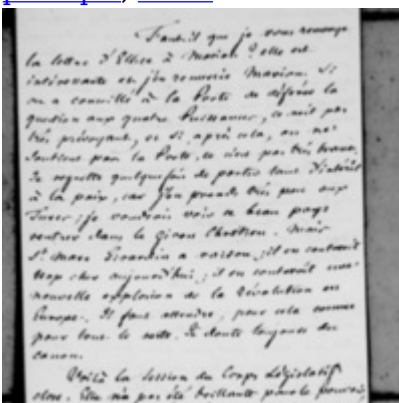 Faut-il que je vous renvoye
la lettre d'Ellice à Marion ? elle est
intéressante et j'en remercie Marion. Si
on a conseillé à la Porte de déférer la
question aux quatre Puissances, ce n'est pas
très prévoyant, et si, après cela, on ne
soutient pas la Porte, ce n'est pas très brave.
Je regrette quelquefois de porter tant d'intérêt
à la paix, car j'en prends très peu aux
Turcs ; je voudrais voir ce beau pays
rentrer dans le giron Chrétien. Mais
St Marc Girardin a raison ; il en couterait
trop cher aujourd'hui ; il en couterait une
nouvelle explosion de la Révolution en
Europe. Il faut attendre, pour cela comme
pour tout le reste. Je doute toujours du
canon.
Voilà la session du Corps Législatif
close. Elle n'a pas été brillante pour le pouvoir,